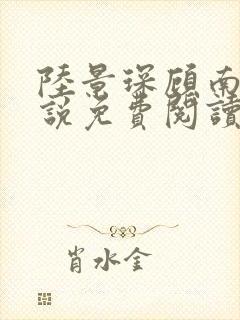 陸景琛顧南
說免費閱讀
肖水金